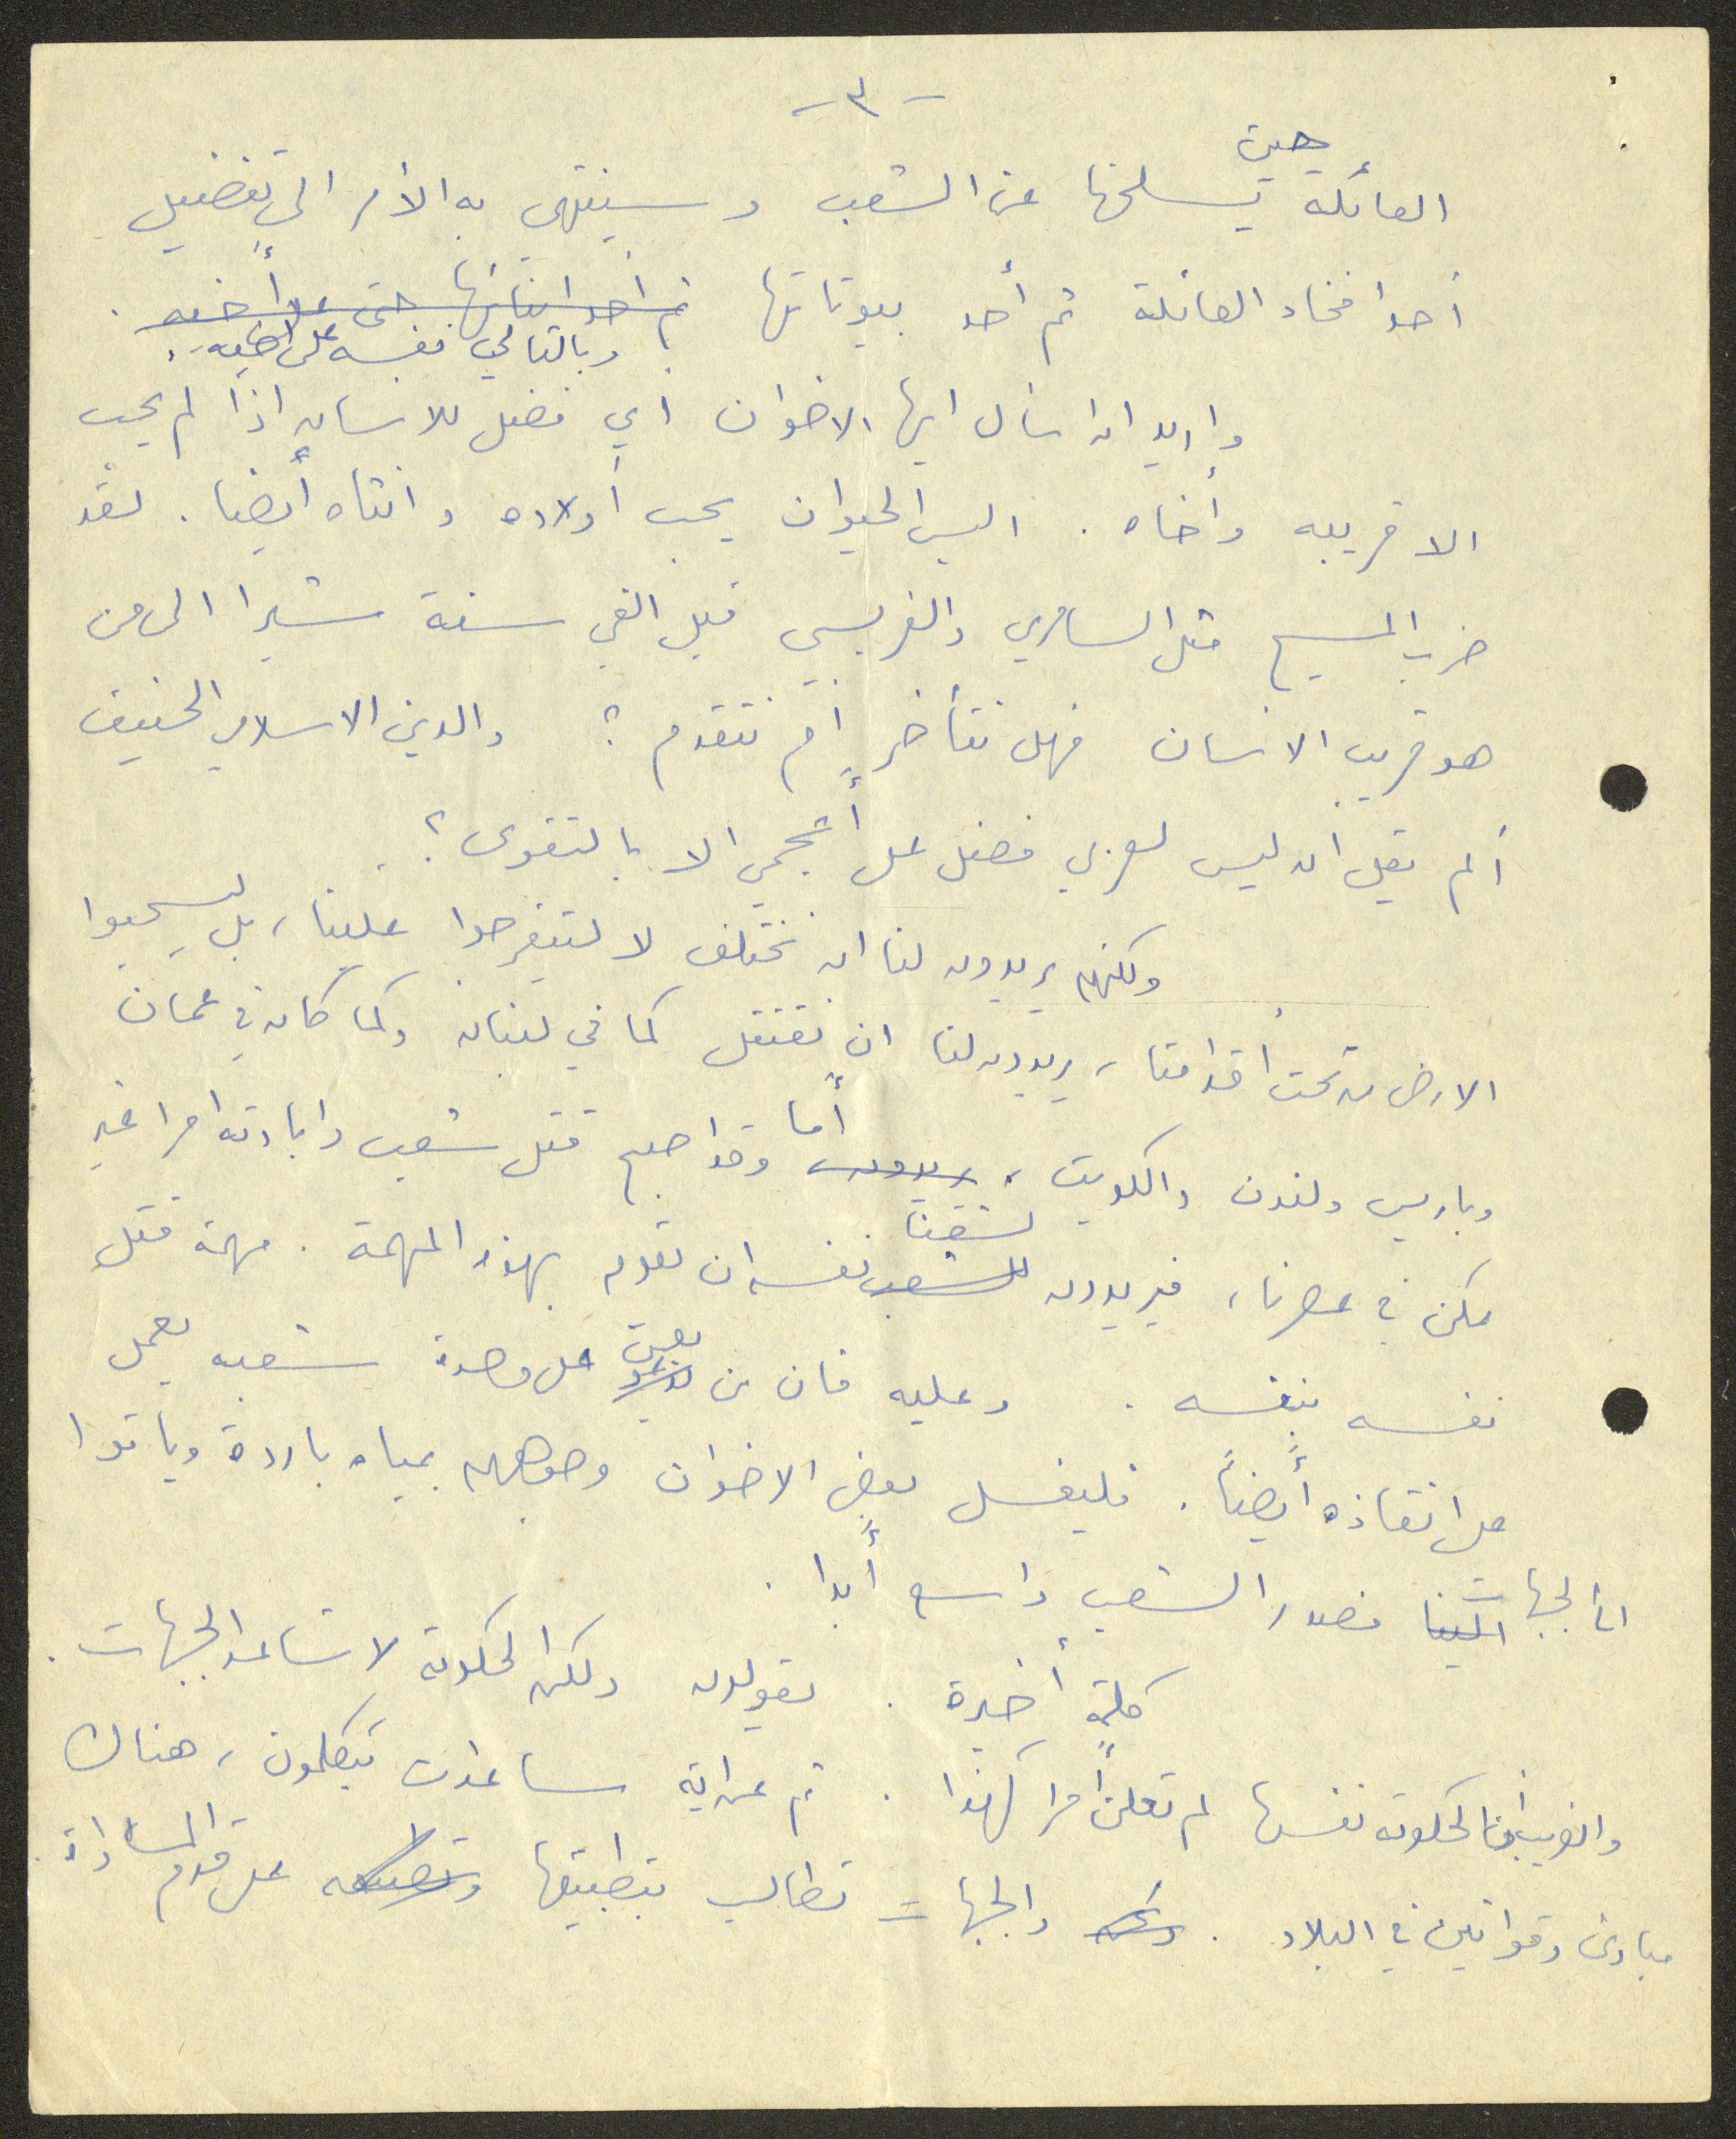 - ٣ -
العائلة حين يسلخها عن الشعب وسينتهي به الأمر الى تفضيل
أحد افخاد العائلة ثم أحد بيوتاتها ثم أحد ابنائها حتى على أخيه .
وبالتالي نفسه على أخيه .
واريد ان اسأل ايها الاخوان أي فضل للانسان اذا لم يحب
الا قريبه وأخاه . اليس الحيوان يحب أولاده وانثاه أيضا . لقد
ضرب المسيح مثل السامري والفريسي قبل الفي سنة مشيرا الى من
هو قريب الانسان فهل نتأخر أم نتقدم ؟ والدين الاسلامي الحنيف
ألم يقل ان ليس لعربي فضل على أعجمي الا بالتقوى ؟ .
ولكنهم يريدون لنا ان نختلف لا ليتفرجوا علينا ، بل ليسحبوا
الارض من تحت أقدامنا ، يريدون لنا ان نقتتل كما في لبنان وكما كان في عمان
وباريس ولندن والكويت ، يريدون أما وقد اصبح قتل شعب وابادته امرا غير
ممكن في عصرنا ، فيريدون للشعب لشعبنا نفسه ان تقوم بهذه المهمة . مهمة قتل
نفسه بنفسه . وعليه فان من يعمل على وحدة شعبه يعمل
على انقاذه أيضاً . فليغسل بعض الاخوان وجوههم بمياه باردة وياتوا
الى الجبهات الينا فصدر الشعب واسع أبدا .
كلمة أخيرة . يقولون ولكن الحكومة لا تساعد الجبهات .
والغريب أن الحكومة نفسها لم تعلن أمرا كهذا . ثم عن اية مساعدات يتكلمون ، هناك
مبادئ وقوانين في البلاد . والجبهات تطالب بتطبيقها على قدم المساواة .